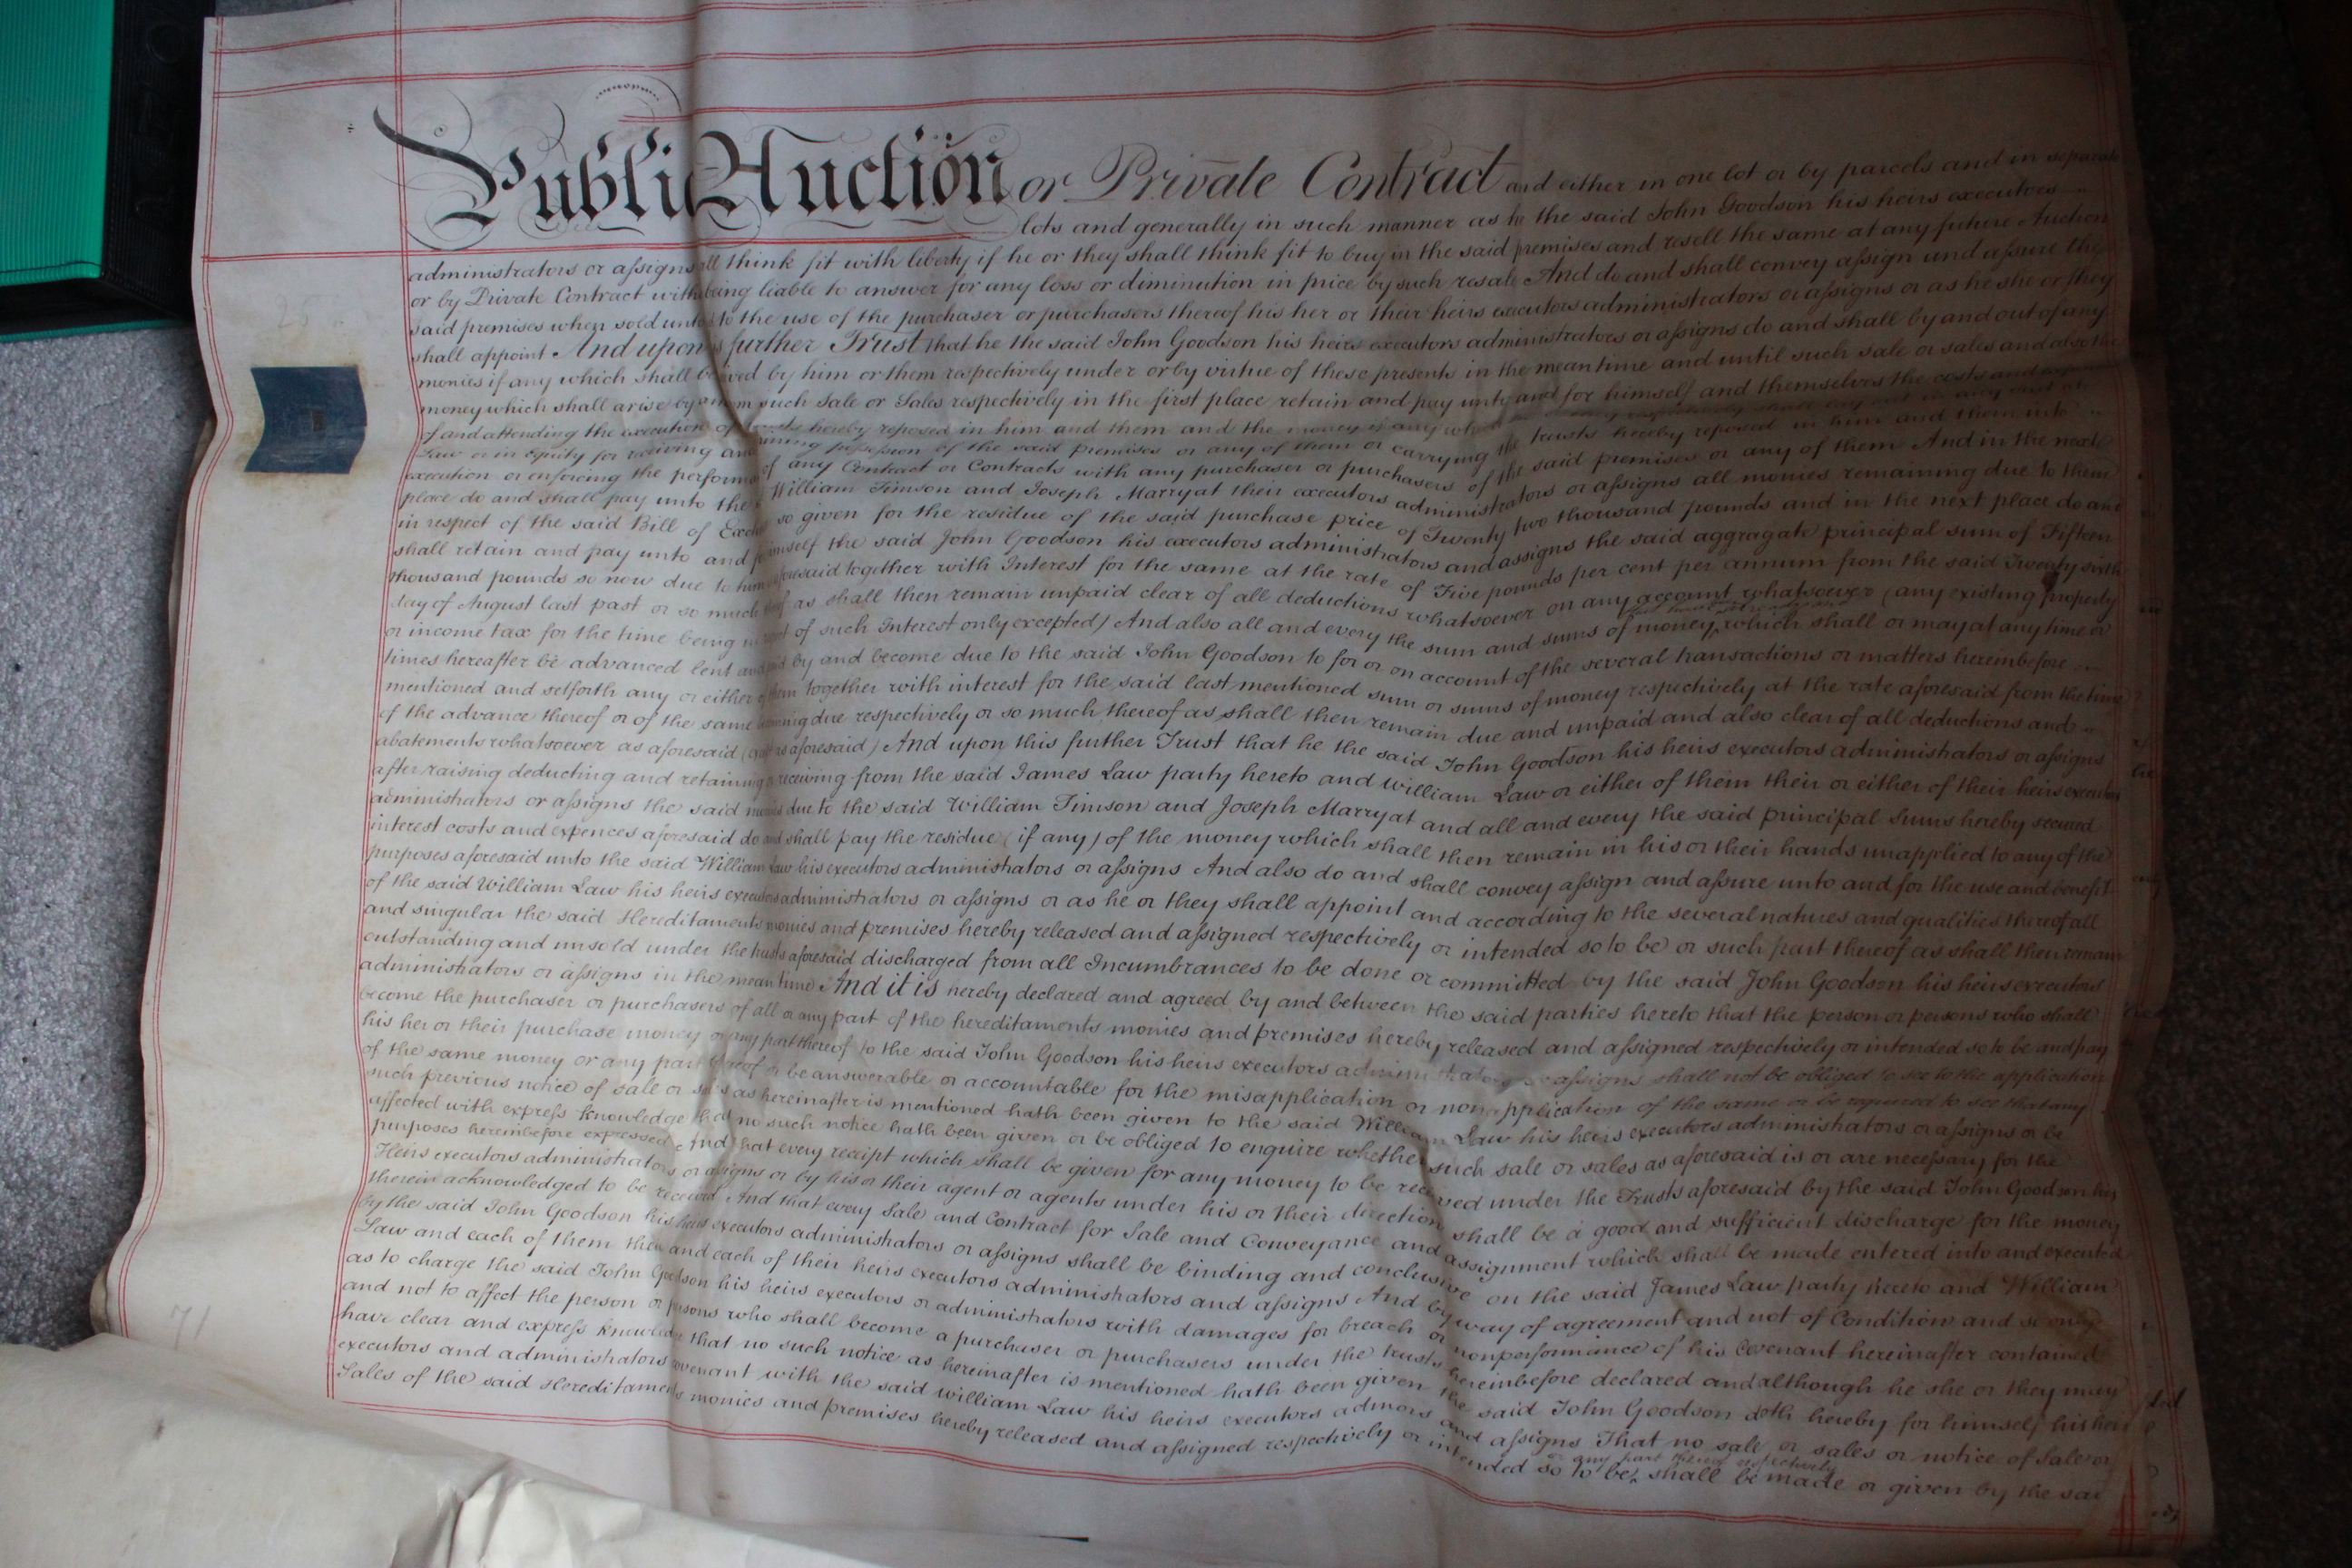 Public Auction or Private Contract and either in one lot or by parcels and in separate
lots and generally in such manner as he the said John Goodson his heirs executors
administrators or assigns all think fit with liberty if he or they shall think fit to buy in the said premises and resell the same at any future Auction
or by Private Contract with being liable to answer for any loss or diminution in price by such resale And do and shall convey assign and assure the
said premises when sold unto to the use of the purchaser or purchasers thereof his her or their heirs executors administrators or assigns or as he she or they
shall appoint And upon further Trust that he the said John Goodson his heirs executors administrators or assigns do and shall by and out of any
monies if any which shall be ived by him or them respectively under or by virtue of these presents in the meantime and until such sale or sales and also the
money which shall arise by such Sale or Sales respectively in the first place retain and pay unto and for himself and themselves the costs and
of and attending the execution of hereby reposed in him and them and the money if any which
Law or in Equity for receiving and possession of the said premises or any of them or carrying the trusts hereby reposed in him and them into
execution or enforcing the perform of any Contract or Contracts with any purchaser or purchasers of the said premises or any of them And in the next
place do and shall pay unto the William Timson and Joseph Marryat their executors administrators or assigns all monies remaining due to them
in respect of the said Bill of Exch so given for the residue of the said purchase price of Twenty two thousand pounds and in the next place do and
shall retain and pay unto and for himself the said John Goodson his executors administrators and assigns the said aggragate principal sum of Fifteen
thousand pounds so now due to him aforesaid together with Interest for the same at the rate of Five pounds per cent per annum from the said Twenty sixth
day of August last past or so much thereof as shall then remain unpaid clear of all deductions whatsoever on any account whatsoever (any existing property
or income tax for the time being in respect of such Interest only excepted) And also all and every the sum and sums of money which shall or may at any time or
times hereafter be advanced lent and paid by and become due to the said John Goodson to for or on account of the several transactions or matters hereinbefore
mentioned and setforth any or either of them together with interest for the said last mentioned sum or sums of money respectively at the rate aforesaid from the time
of the advance thereof or of the same becoming due respectively or so much thereof as shall then remain due and unpaid and also clear of all deductions and
abatements whatsoever as aforesaid (except as aforesaid) And upon this further Trust that he the said John Goodson his heirs executors administrators or assigns
after raising deducting and retaining or receiving from the said James Law party hereto and William Law or either of them their or either of their heirs executors
administrators or assigns the said monies due to the said William Timson and Joseph Marryat and all and every the said principal sums hereby secured
interest costs and expences aforesaid do and shall pay the residue (if any) of the money which shall then remain in his or their hands unapplied to any of the
purposes aforesaid unto the said William Law his executors administrators or assigns And also do and shall convey assign and assure unto and for the use and benefit
of the said William Law his heirs executors administrators or assigns or as he or they shall appoint and according to the several natures and qualities thereof all
and singular the said Hereditaments monies and premises hereby released and assigned respectively or intended so to be or such part thereof as shall then remain
outstanding and unsold under the trusts aforesaid discharged from all Incumbrances to be done or committed by the said John Goodson his heirs executors
administrators or assigns in the mean time And it is hereby declared and agreed by and between the said parties hereto that the person or persons who shall
become the purchaser or purchasers of all or any part of the hereditaments monies and premises hereby released and assigned respectively or intended so to be and pay
his her or their purchase money or any part thereof to the said John Goodson his heirs executors administrators or assigns shall not be obliged to see to the application
of the same money or any part thereof or be answerable or accountable for the misapplication or nonapplication of the same or be required to see that any
such previous notice of sale or sales as hereinafter is mentioned hath been given to the said William Law his heirs executors administrators or assigns or be
affected with express knowledge that no such notice hath been given or be obliged to enquire whether such sale or sales as aforesaid is or are necessary for the
purposes hereinbefore expressed And that every receipt which shall be given for any money to be received under the Trusts aforesaid by the said John Goodson his
Heirs executors administrators or assigns or by his or their agent or agents under his or their direction shall be a good and sufficient discharge for the money
therein acknowledged to be received And that every Sale and Contract for Sale and Conveyance and assignment which shall be made entered into and executed
by the said John Goodson his heirs executors administrators or assigns shall be binding and conclusive on the said James Law party hereto and William
Law and each of them their and each of their heirs executors administrators and assigns And by way of agreement and not of Condition and so only
as to charge the said John Goodson his heirs executors or administrators with damages for breach or nonperformance of his Covenant hereinafter contained
and not to affect the person or persons who shall become a purchaser or purchasers under the trusts hereinbefore declared and although he she or they may
have clear and express knowledge that no such notice as hereinafter is mentioned hath been given the said John Goodson doth hereby for himself his heirs
executors and administrators covenant with the said William Law his heirs executors admors and assigns That no sale or sales or notice of Sale or
or any part thereof respectively
Sales of the said Hereditaments monies and premises hereby released and assigned respectively or intended so to be shall be made or given by the said
71